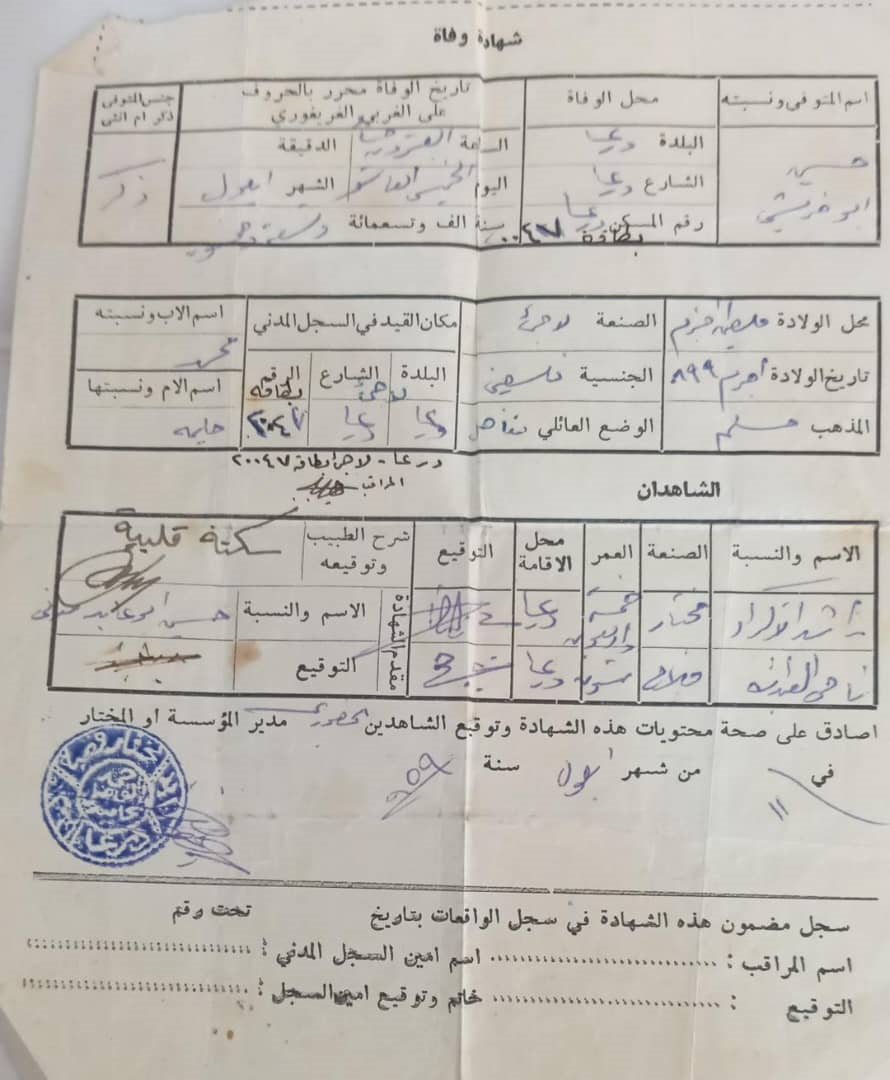 شهادة وفاة
اسم المتوفى ونسبته
محل الوفاة
تاريخ الوفاة محرر بالحروف
على الغربي الغريغوري
جنس المتوفى
ذكر ام انثى
حسين
البلدة درعا
الشارع درعا
رقم المسكن درعا
بطاقة ٢٠٠٤٧
الساعة الدقيقة
اليوم الخميس العاشر الشهر ايلول
سنة الف وتسعمائة وتسعة وخمسون
ذكر
محل الولادة
تاريخ الولادة ٨٩٩
المذهب مسلم
الصنعة
الجنسية فلسطيني
الوضع العائلي متأهل
مكان القيد في السجل المدني
البلدة الشارع الرقم
بطاقة
درعا درعا ٢٠٠٤٧
اسم الاب ونسبته
محمد
اسم الام ونسبتها
حليمه
درعا - لاجئ بطاقة ٢٠٠٤٧
المراقب
الشاهدان
الاسم والنسبة
الصنعة
العمر
محل الاقامة
التوقيع
شرح الطبيب وتوقيعه
سكتة قلبية
راشد الاكراد
مختار
خمسة واربعون
درعا
ناجي
فلاح
ستون
درعا
مقدم الشهادة
الاسم والنسبة حسين ابو
التوقيع
اصادق على صحة محتويات هذه الشهادة وتوقيع الشاهدين بحضوري مدير المؤسسة او المختار
في ١١ من شهر ايلول سنة ٩٥٩
سجل مضمون هذه الشهادة في سجل الواقعات بتاريخ تحت رقم
اسم المراقب : اسم امين السجل المدني :
التوقيع : خاتم وتوقيع امين السجل :